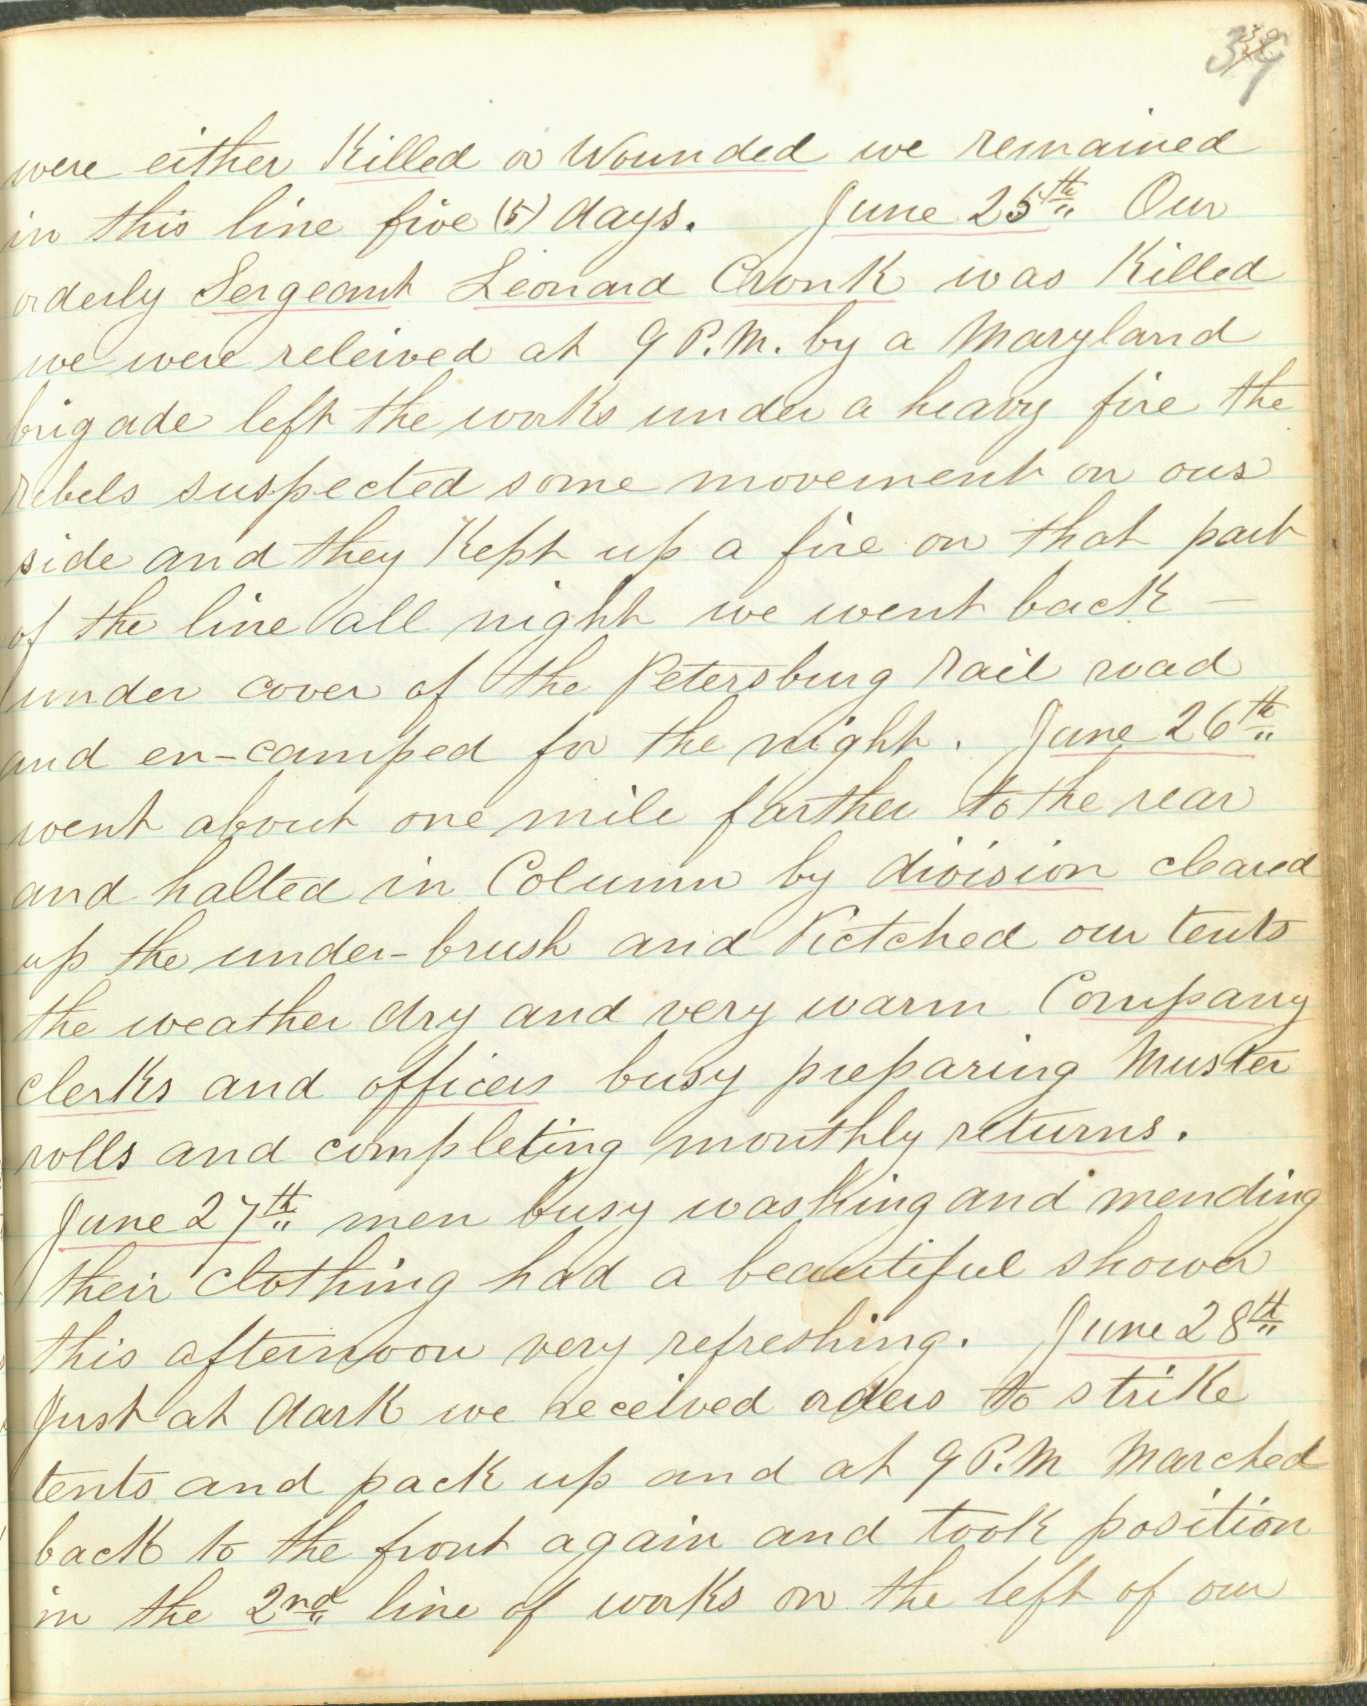 39
were either Killed or Wounded we remained
in this line five (5) days. June 25th Our
orderly Sergeant Leonard Cronk was Killed
we were releived at 9 P.M. by a Maryland
brigade left the works under a heavy fire the
rebels suspected some movement on our
side and they Kept up a fire on that part
of the line all night we went back –
under cover of the Petersburg rail road
and en-camped for the night. June 26th
went about one mile farther to the rear
and halted in Column by division cleared
up the under-brush and Pictched our tents
the weather dry and very warm Company
clerks and officers busy preparing Muster
rolls and completing monthly returns.
June 27th men busy washing and mending
their clothing had a beautiful shower
this afternoon very refreshing. June 28th
Just at dark we received orders to strike
tents and pack up and at 9 P.M Marched
back to the front again and took position
in the 2nd line of works on the left of our